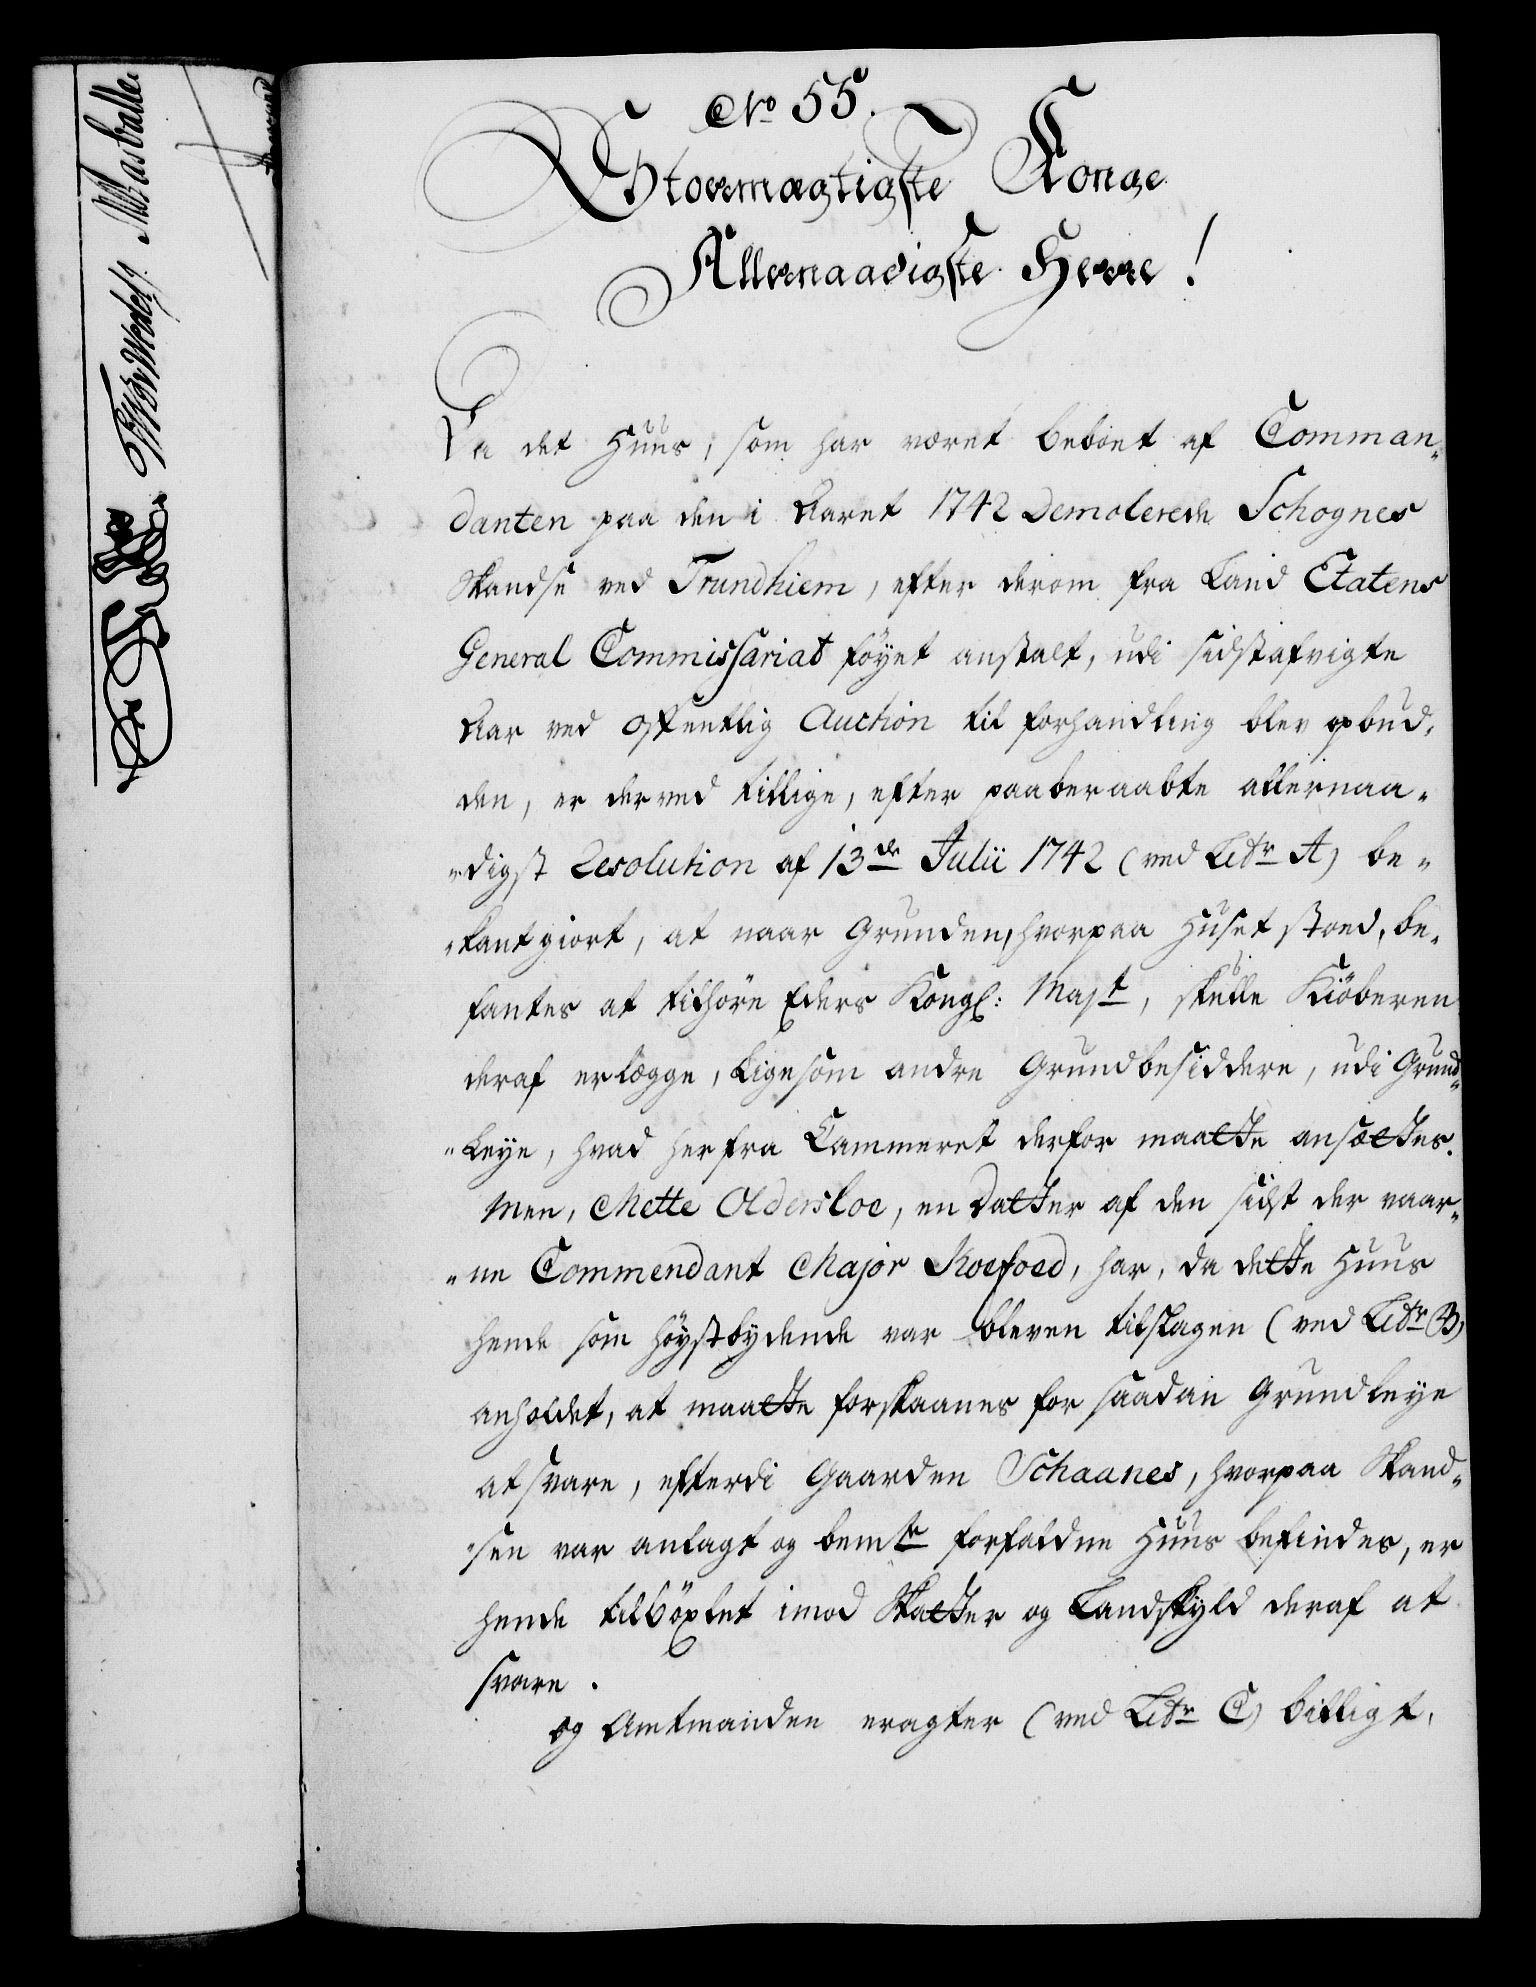 No 55.
Stormægtigste Konge
Allernaadigste Herre!
Da det Huus, som har været beboet af Comman-
danten paa den i Aaret 1742 Demolerede Schognes
Skandse ved Trundhiem, efter derom fra Land Etatens
General Commissariat föyet anstalt, udi sidstafvigte
Aar ved offentlig Auction til forhandling blev opbud-
den, er derved tillige, efter paaberaabte allernaa-
digst Resolution af 13de Julii 1742 (ved Litr A) be-
kantgiort, at naar Grunden, hvorpaa Huset stoed, be-
fantes at tilhöre Eders Kongl: Majt, skulle Kiöberen
deraf erlægge, ligesom andre Grundbesiddere, udi Grund-
Leye, hvad herfra Cammeret derfor maatte ansættes.
Men, Mette Oldersloe, en Datter af den sidst der vaar-
ne Commendant Major Koefoed, har, da dette Huus
hende som höystbydende var bleven tilslagen (ved Litr B)
anholdet, at maatte forskaanes for saadan Grundleye
at svare, efterdi Gaarden Schaanes, hvorpaa Skand-
sen var anlagt og bemte forfaldne Huus befindes, er
hende tilböxlet imod Skatter og Landskyld deraf at
svare.
og Amtmanden eragter (ved Litr C) billigt,